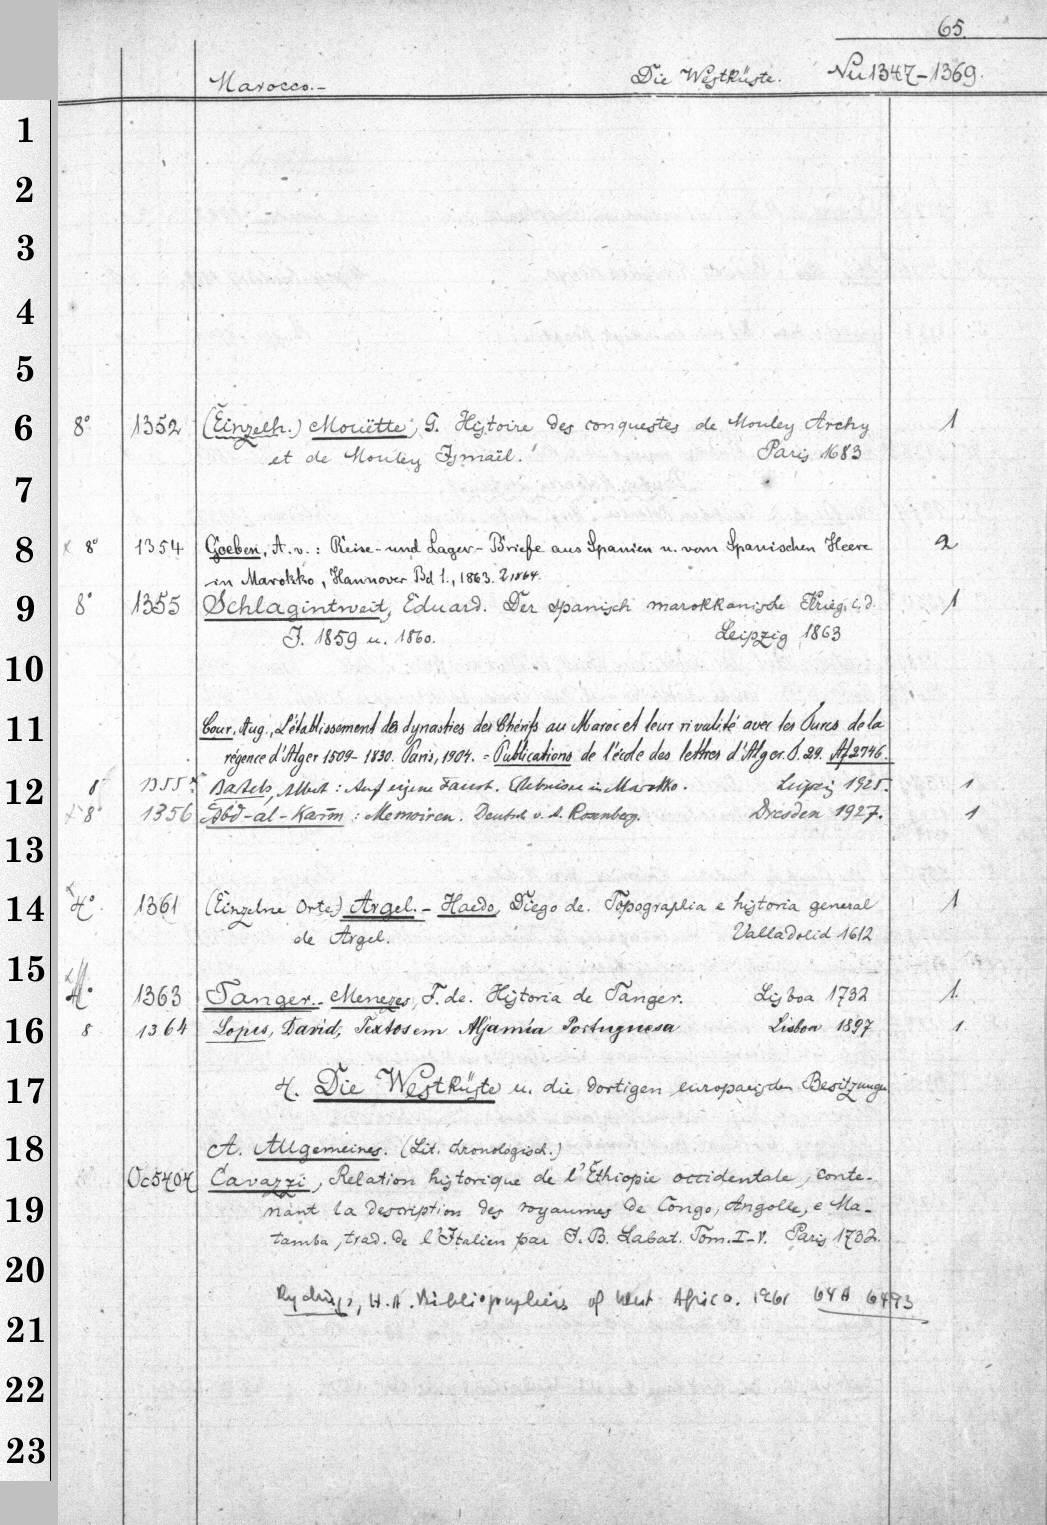 65.
Marocco.- Die Westküste. Nu 1347-1369.
1
2
3
4
5
6 8° 1352 (Einzelh.) Mouëtte, G. Histoire des conquestes de Mouley Archy 1
et de Mouley Ismaël. Paris 1683
7
8 x 8° 1354 Goeben, A. v. : Reise- und Lager-Briefe aus Spanien u. vom Spanischen Heere 2
in Marokko, Hannover Bd 1., 1863. 2 1864.
9 8° 1355 Schlagintweit, Eduard. Der spanisch marokkanische Krieg i. d. 1
J. 1859 u. 1860. Leipzig 1863
10
11 Cour, Aug., L'établissement des dynasties des Chérifs au Maroc et leur rivalité avec les Turcs de la
régence d'Alger 1509-1830. Paris, 1904. = Publications de l'école des lettres d'Alger. T. 29. Af 2746.
12 8 1355 Bartels, Albert : Auf eigene Faust. Erlebnisse in Marokko. Leipzig 1925. 1
x 8° 1356 Abd-al-Karīm : Memoiren. Deutsch v. A. Rosenberg. Dresden 1927. 1
13
14 x 4° 1361 (Einzelne Orte) Argel.- Haedo, Diego de. Topographia e historia general 1
de Argel. Valladolid 1612
15
x 4° 1363 Tanger.- Menezes, F. de. Historia de Tanger. Lisboa 1732 1.
16 8 1364 Lopes, David, Textos em Aljamía Portuguesa Lisboa 1897 1.
17 4. Die Westküste u. die dortigen europaeischen Besitzungen
18 A. Allgemeines. (Lit. chronologisch.)
Oc 5404 Cavazzi, Relation historique de l'Ethiopie occidentale, conte-
19 nant la description des royaumes de Congo, Angolle, e Ma-
tamba, trad. de l'Italien par J. B. Labat. Tom. I-V. Paris 1732.
20
Rydings, H. A. Bibliographies of West Africa. 1961 64 A 6493
21
22
23